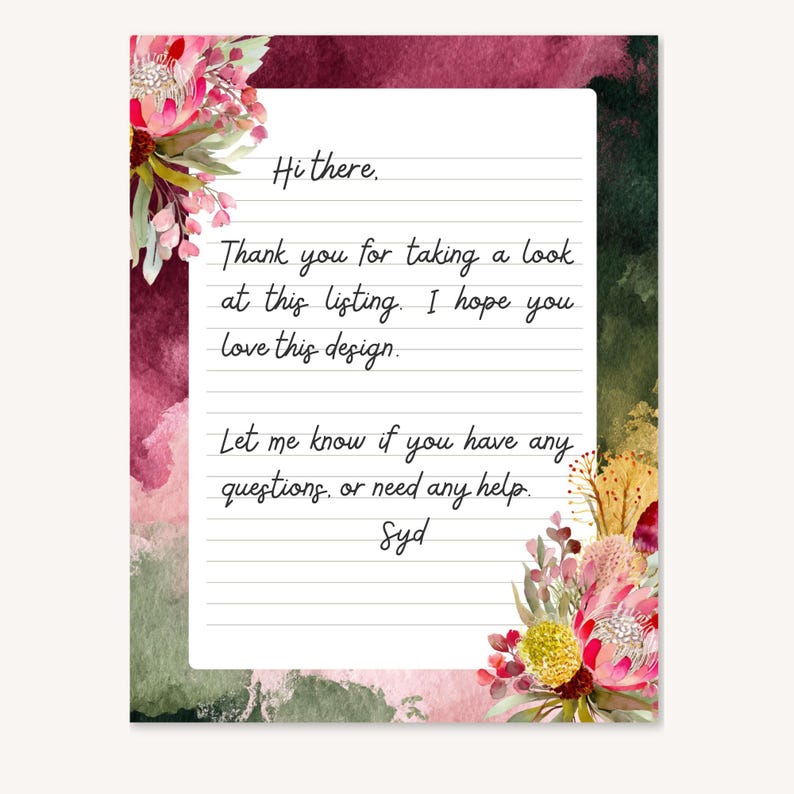 Hi there,
Thank you for taking a look
at this listing. I hope you
love this design.
Let me know if you have any
questions, or need any help.
Syd